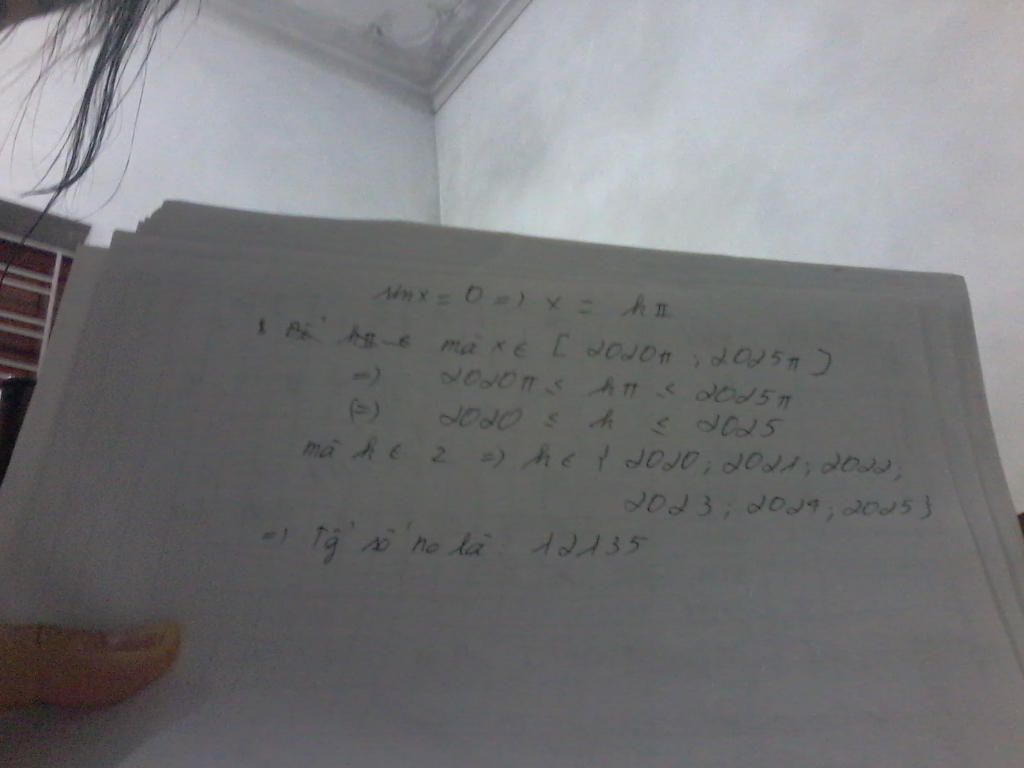 sinx = 0 => x = kπ
mà x ∈ [ 2020π ; 2025π ]
=> 2020π ≤ kπ ≤ 2025π
(=) 2020 ≤ k ≤ 2025
mà k ∈ Z => k ∈ { 2020 ; 2021 ; 2022 ;
2023 ; 2024 ; 2025 }
=> Tg̉ số no là 12135